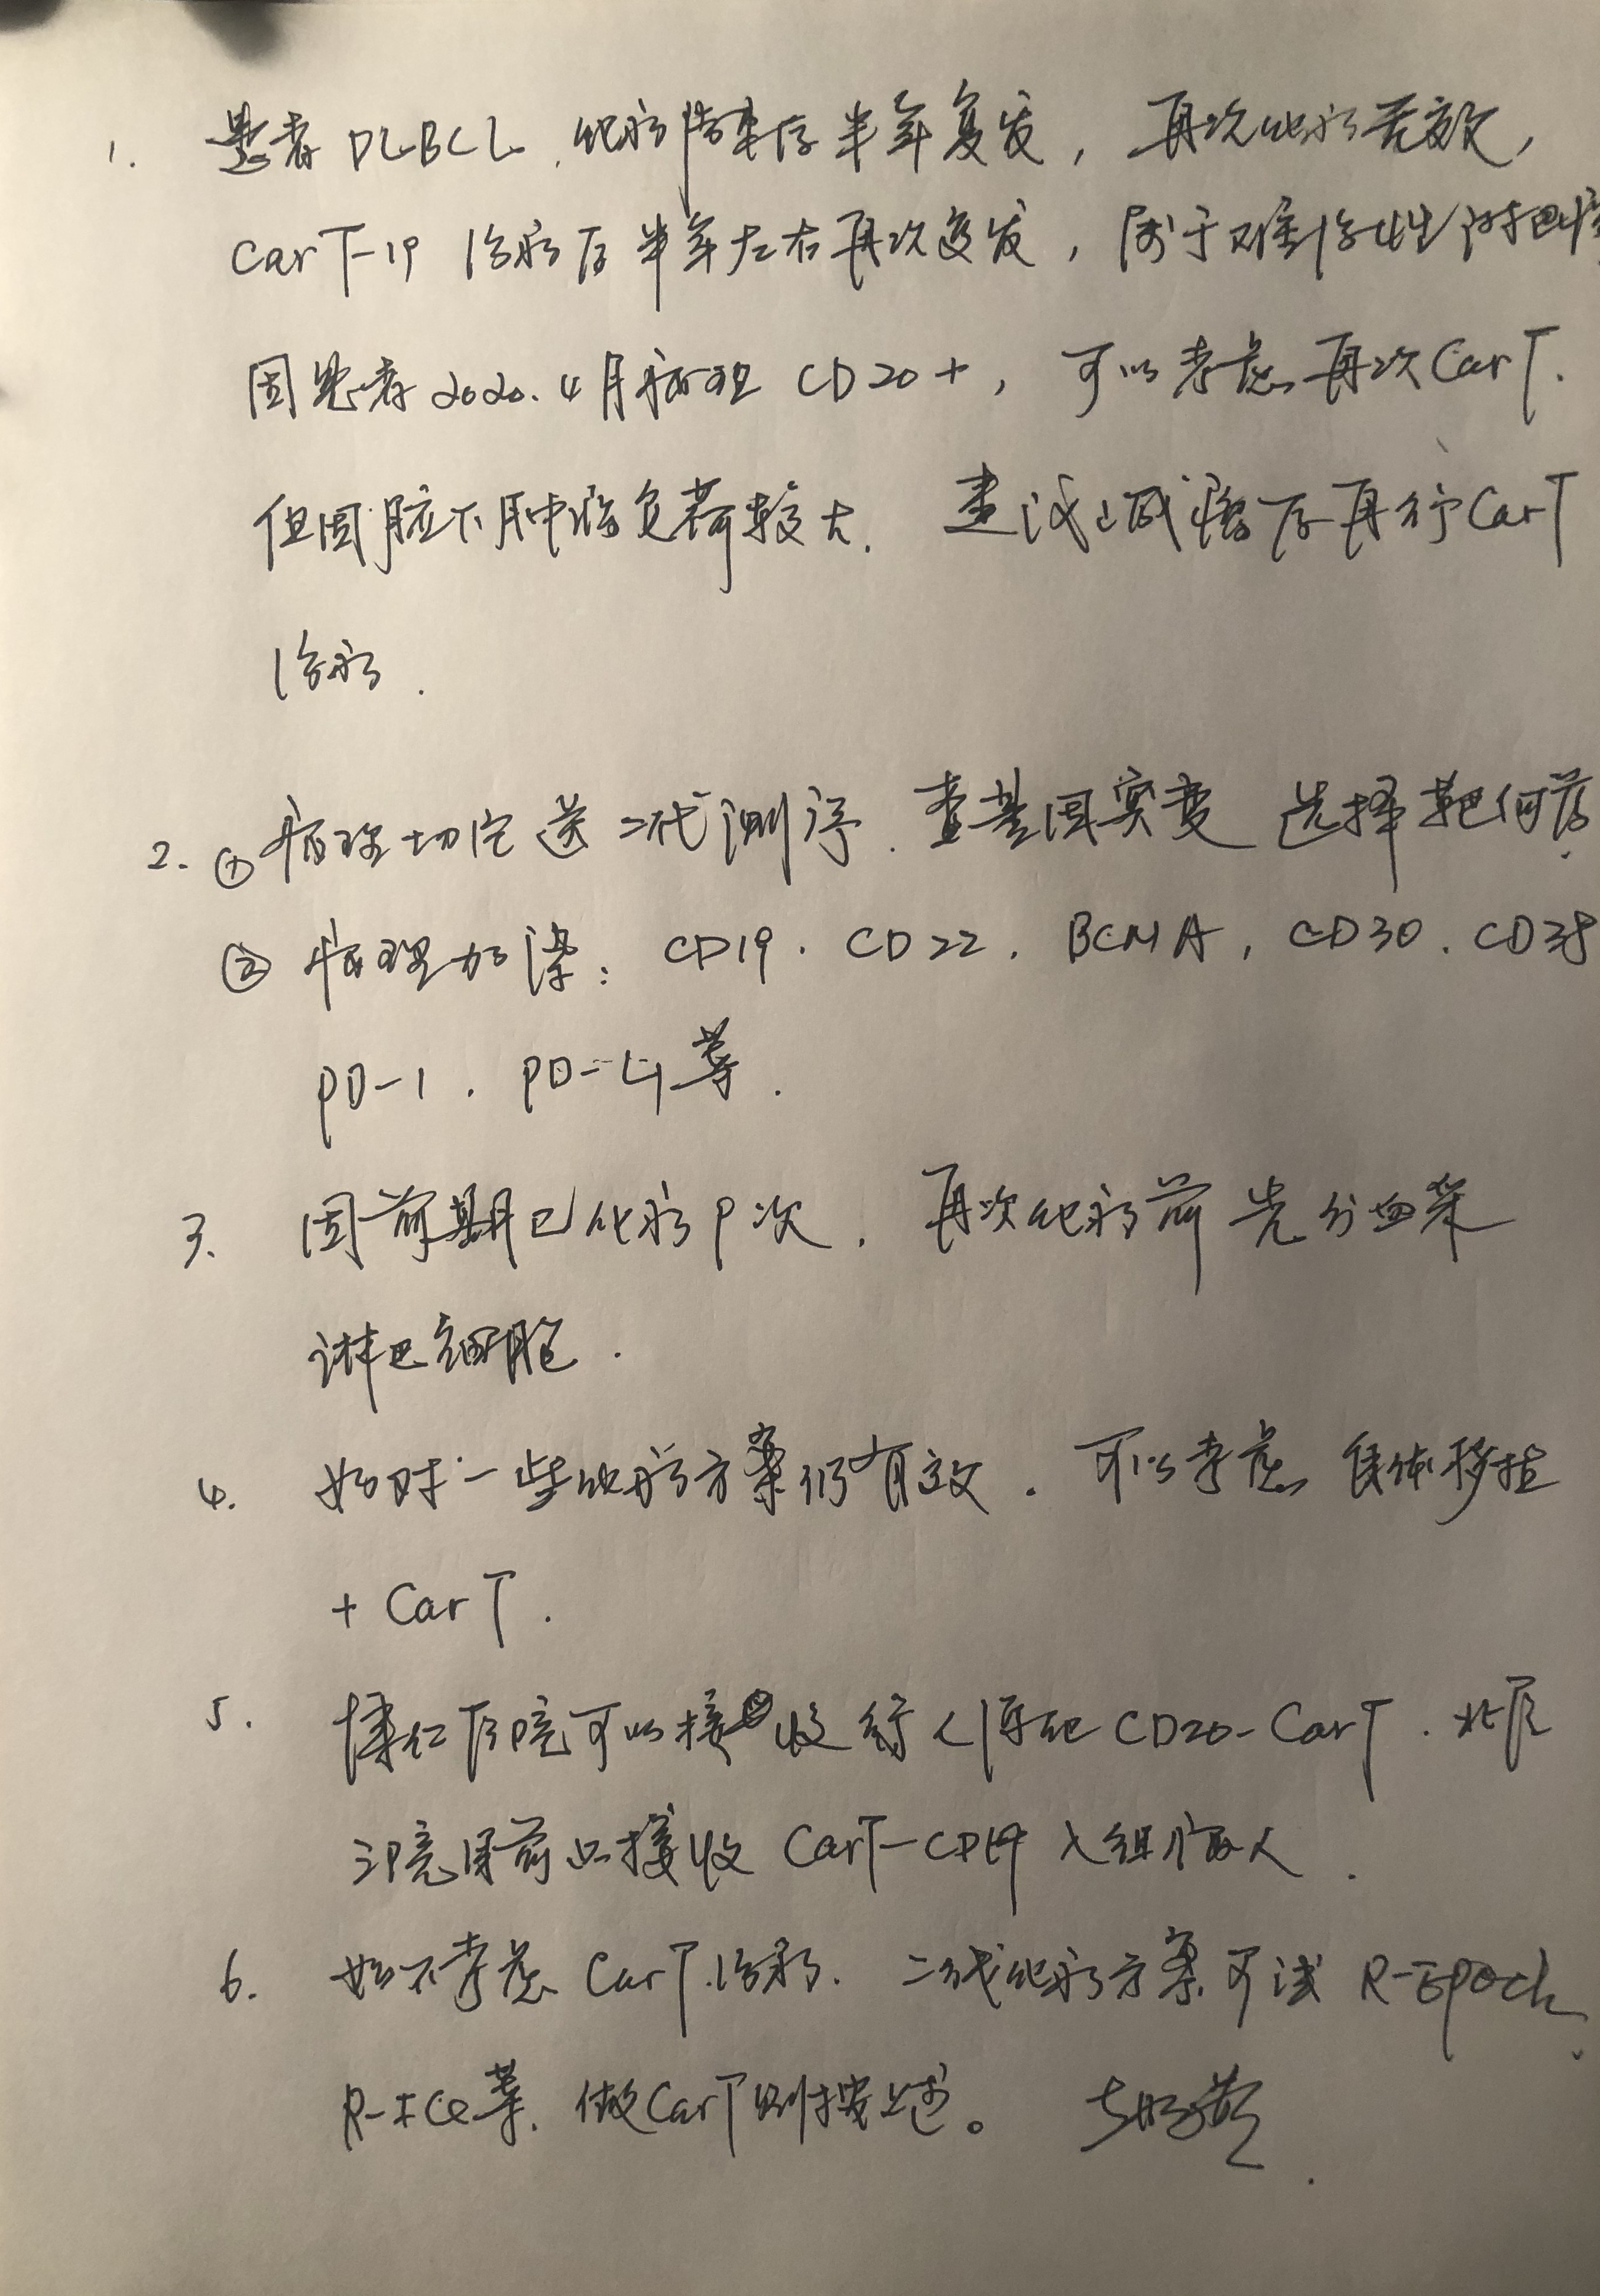 1. 患者 DLBCL, 化疗结束后半年复发, 再次化疗无效,
CarT-19 治疗后半年左右再次复发, 属于难治性淋巴瘤
因患者2020.4月病理 CD20+, 可以考虑再次CarT.
但因腋下肿瘤负荷较大. 建议减瘤后再行CarT
治疗.
2. ① 病理切片送二代测序. 查基因突变 选择靶向药.
② 病理加染: CD19. CD22. BCMA, CD30. CD38
PD-1. PD-L1等.
3. 因前期已化疗9次, 再次化疗前先分血采
淋巴细胞.
4. 如对一些化疗方案仍有效. 可以考虑自体移植
+ CarT.
5. 博仁医院可以接收行人源化CD20-CarT. 北医
三院目前只接收 CarT-CD19 入组病人.
6. 如不考虑 CarT治疗. 二线化疗方案可试 R-EPOCH,
R-ICE等. 做CarT则按上述。